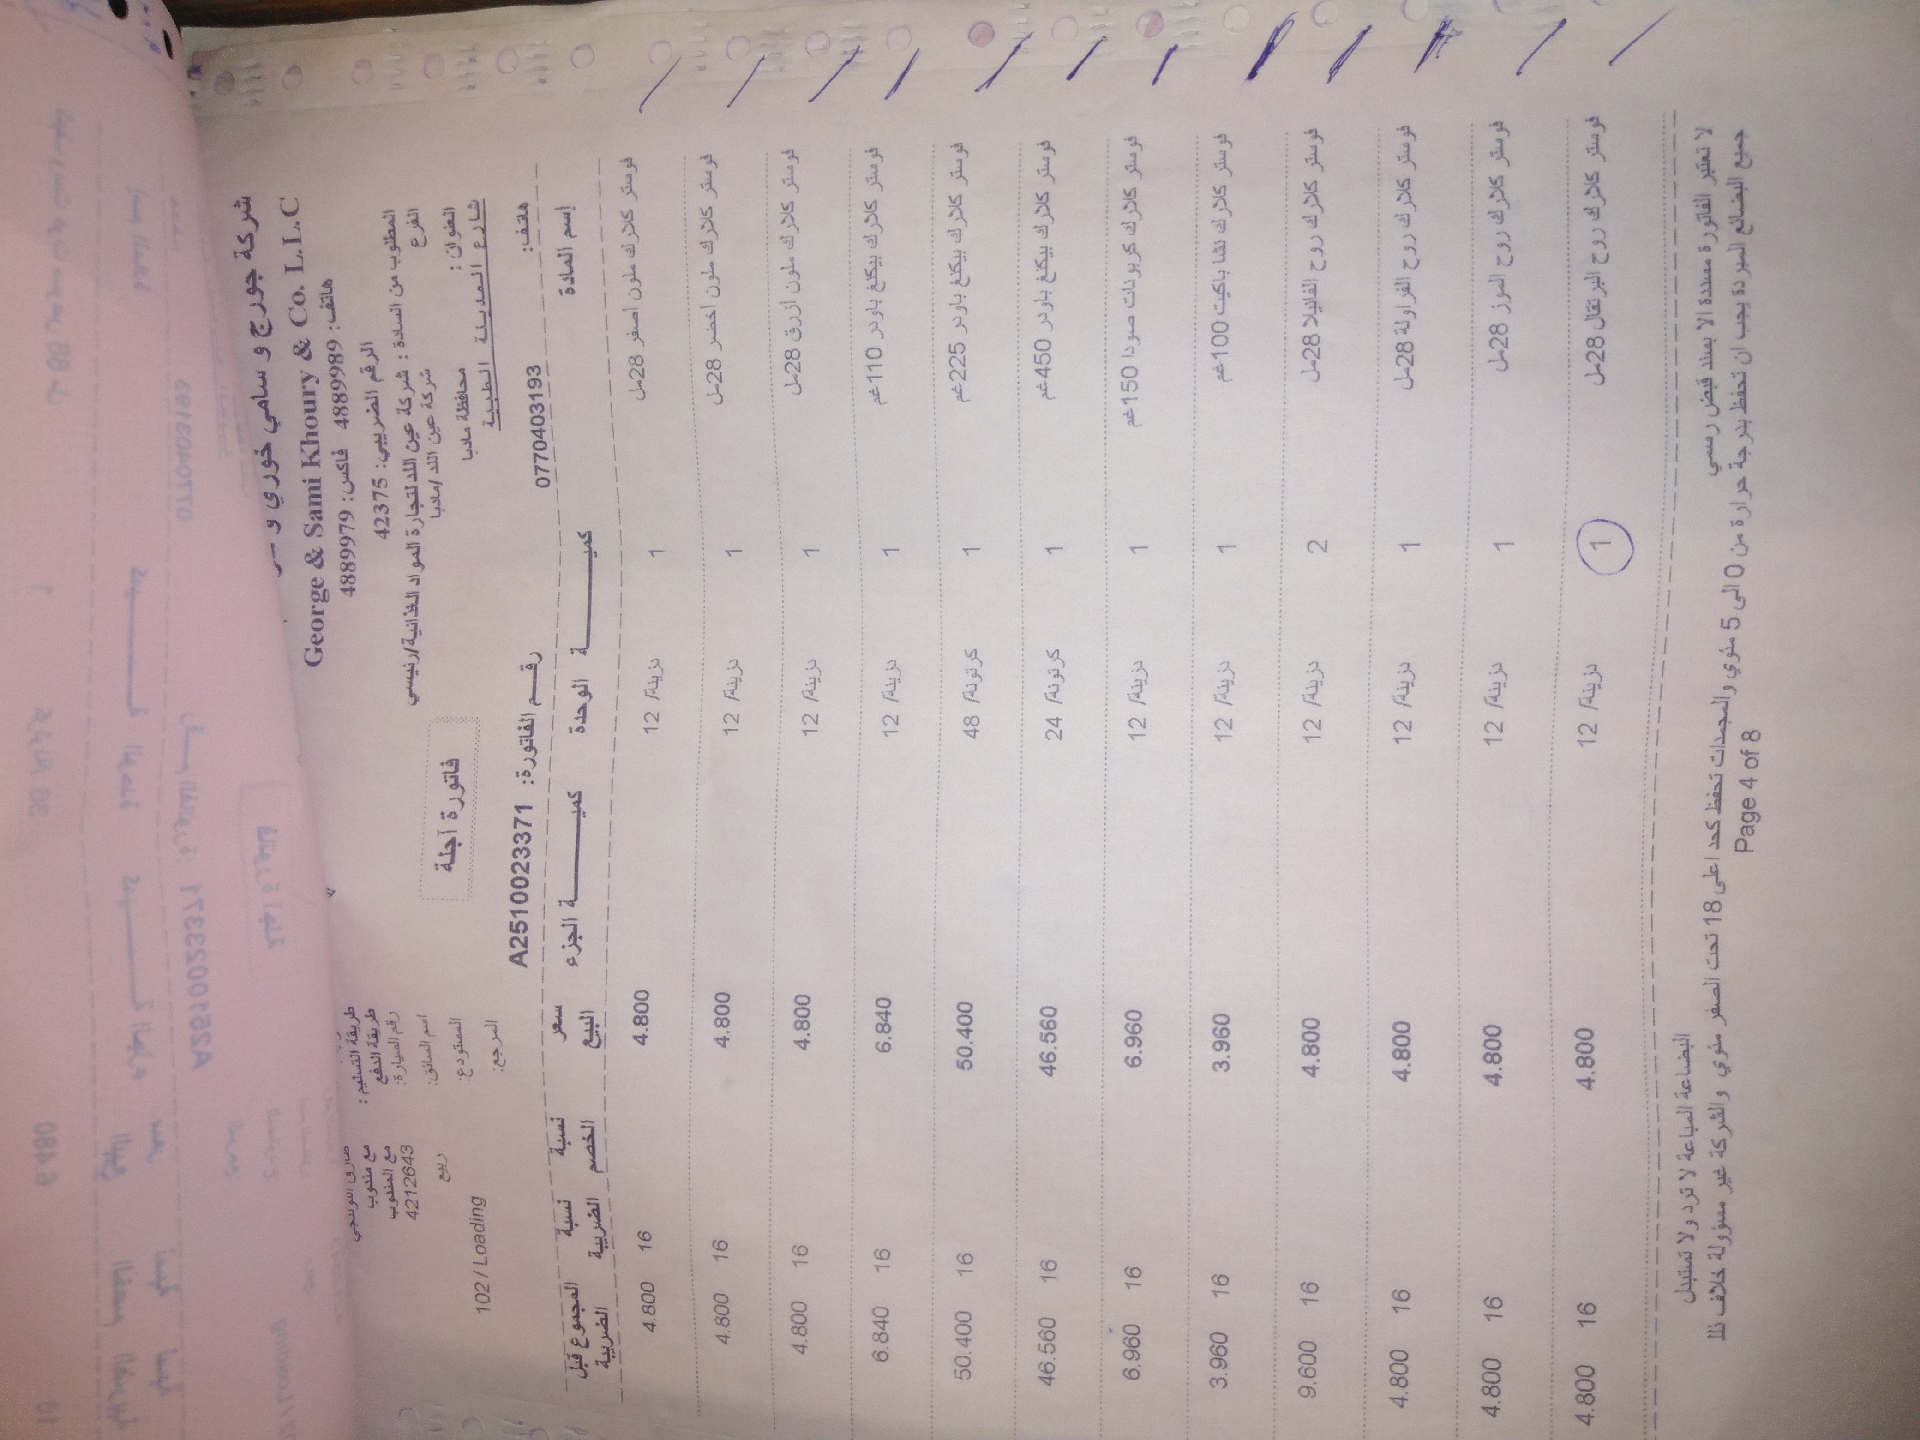 شركة جورج و سامي خوري و
George & Sami Khoury & Co. L.L.C
هاتف: 4889989 فاكس: 4889979
الرقم الضريبي: 42375
المطلوب من السادة : شركة عين اللد لتجارة المواد الغذائية/رئيسي
الفرع شركة عين اللد /مادبا
العنوان : محافظة مادبا
شارع المدينة الطبية
هاتف: 0770403193
فاتورة آجلة
رقم الفاتورة: A2510023371
طريقة التسليم : مع مندوب
طريقة الدفع مع المندوب
رقم السيارة: 4212643
اسم السائق: ربيع
المستودع: 102 / Loading
المرجع:
إسم المادة كميـــة الوحدة كميـــة الجزء سعر البيع نسبة الخصم نسبة الضريبة المجموع قبل الضريبة
فوستر كلارك ملون اصفر 28مل 1 دزينة/ 12 4.800 16 4.800
فوستر كلارك ملون اخضر 28مل 1 دزينة/ 12 4.800 16 4.800
فوستر كلارك ملون ازرق 28مل 1 دزينة/ 12 4.800 16 4.800
فوستر كلارك بيكنغ باودر 110غم 1 دزينة/ 12 6.840 16 6.840
فوستر كلارك بيكنغ باودر 225غم 1 كرتونة/ 48 50.400 16 50.400
فوستر كلارك بيكنغ باودر 450غم 1 كرتونة/ 24 46.560 16 46.560
فوستر كلارك كربونات صودا 150غم 1 دزينة/ 12 6.960 16 6.960
فوستر كلارك نشا باكيت 100غم 1 دزينة/ 12 3.960 16 3.960
فوستر كلارك روح الفانيلا 28مل 2 دزينة/ 12 4.800 16 9.600
فوستر كلارك روح الفراولة 28مل 1 دزينة/ 12 4.800 16 4.800
فوستر كلارك روح الموز 28مل 1 دزينة/ 12 4.800 16 4.800
فوستر كلارك روح البرتقال 28مل 1 دزينة/ 12 4.800 16 4.800
لا تعتبر الفاتورة مسددة الا بسند قبض رسمي البضاعة المباعة لا ترد ولا تستبدل
جميع البضائع المبردة يجب ان تحفظ بدرجة حرارة من 0 الى 5 مئوي والمجمدات تحفظ كحد اعلى 18 تحت الصفر مئوي والشركة غير مسؤولة خلاف ذلك
Page 4 of 8